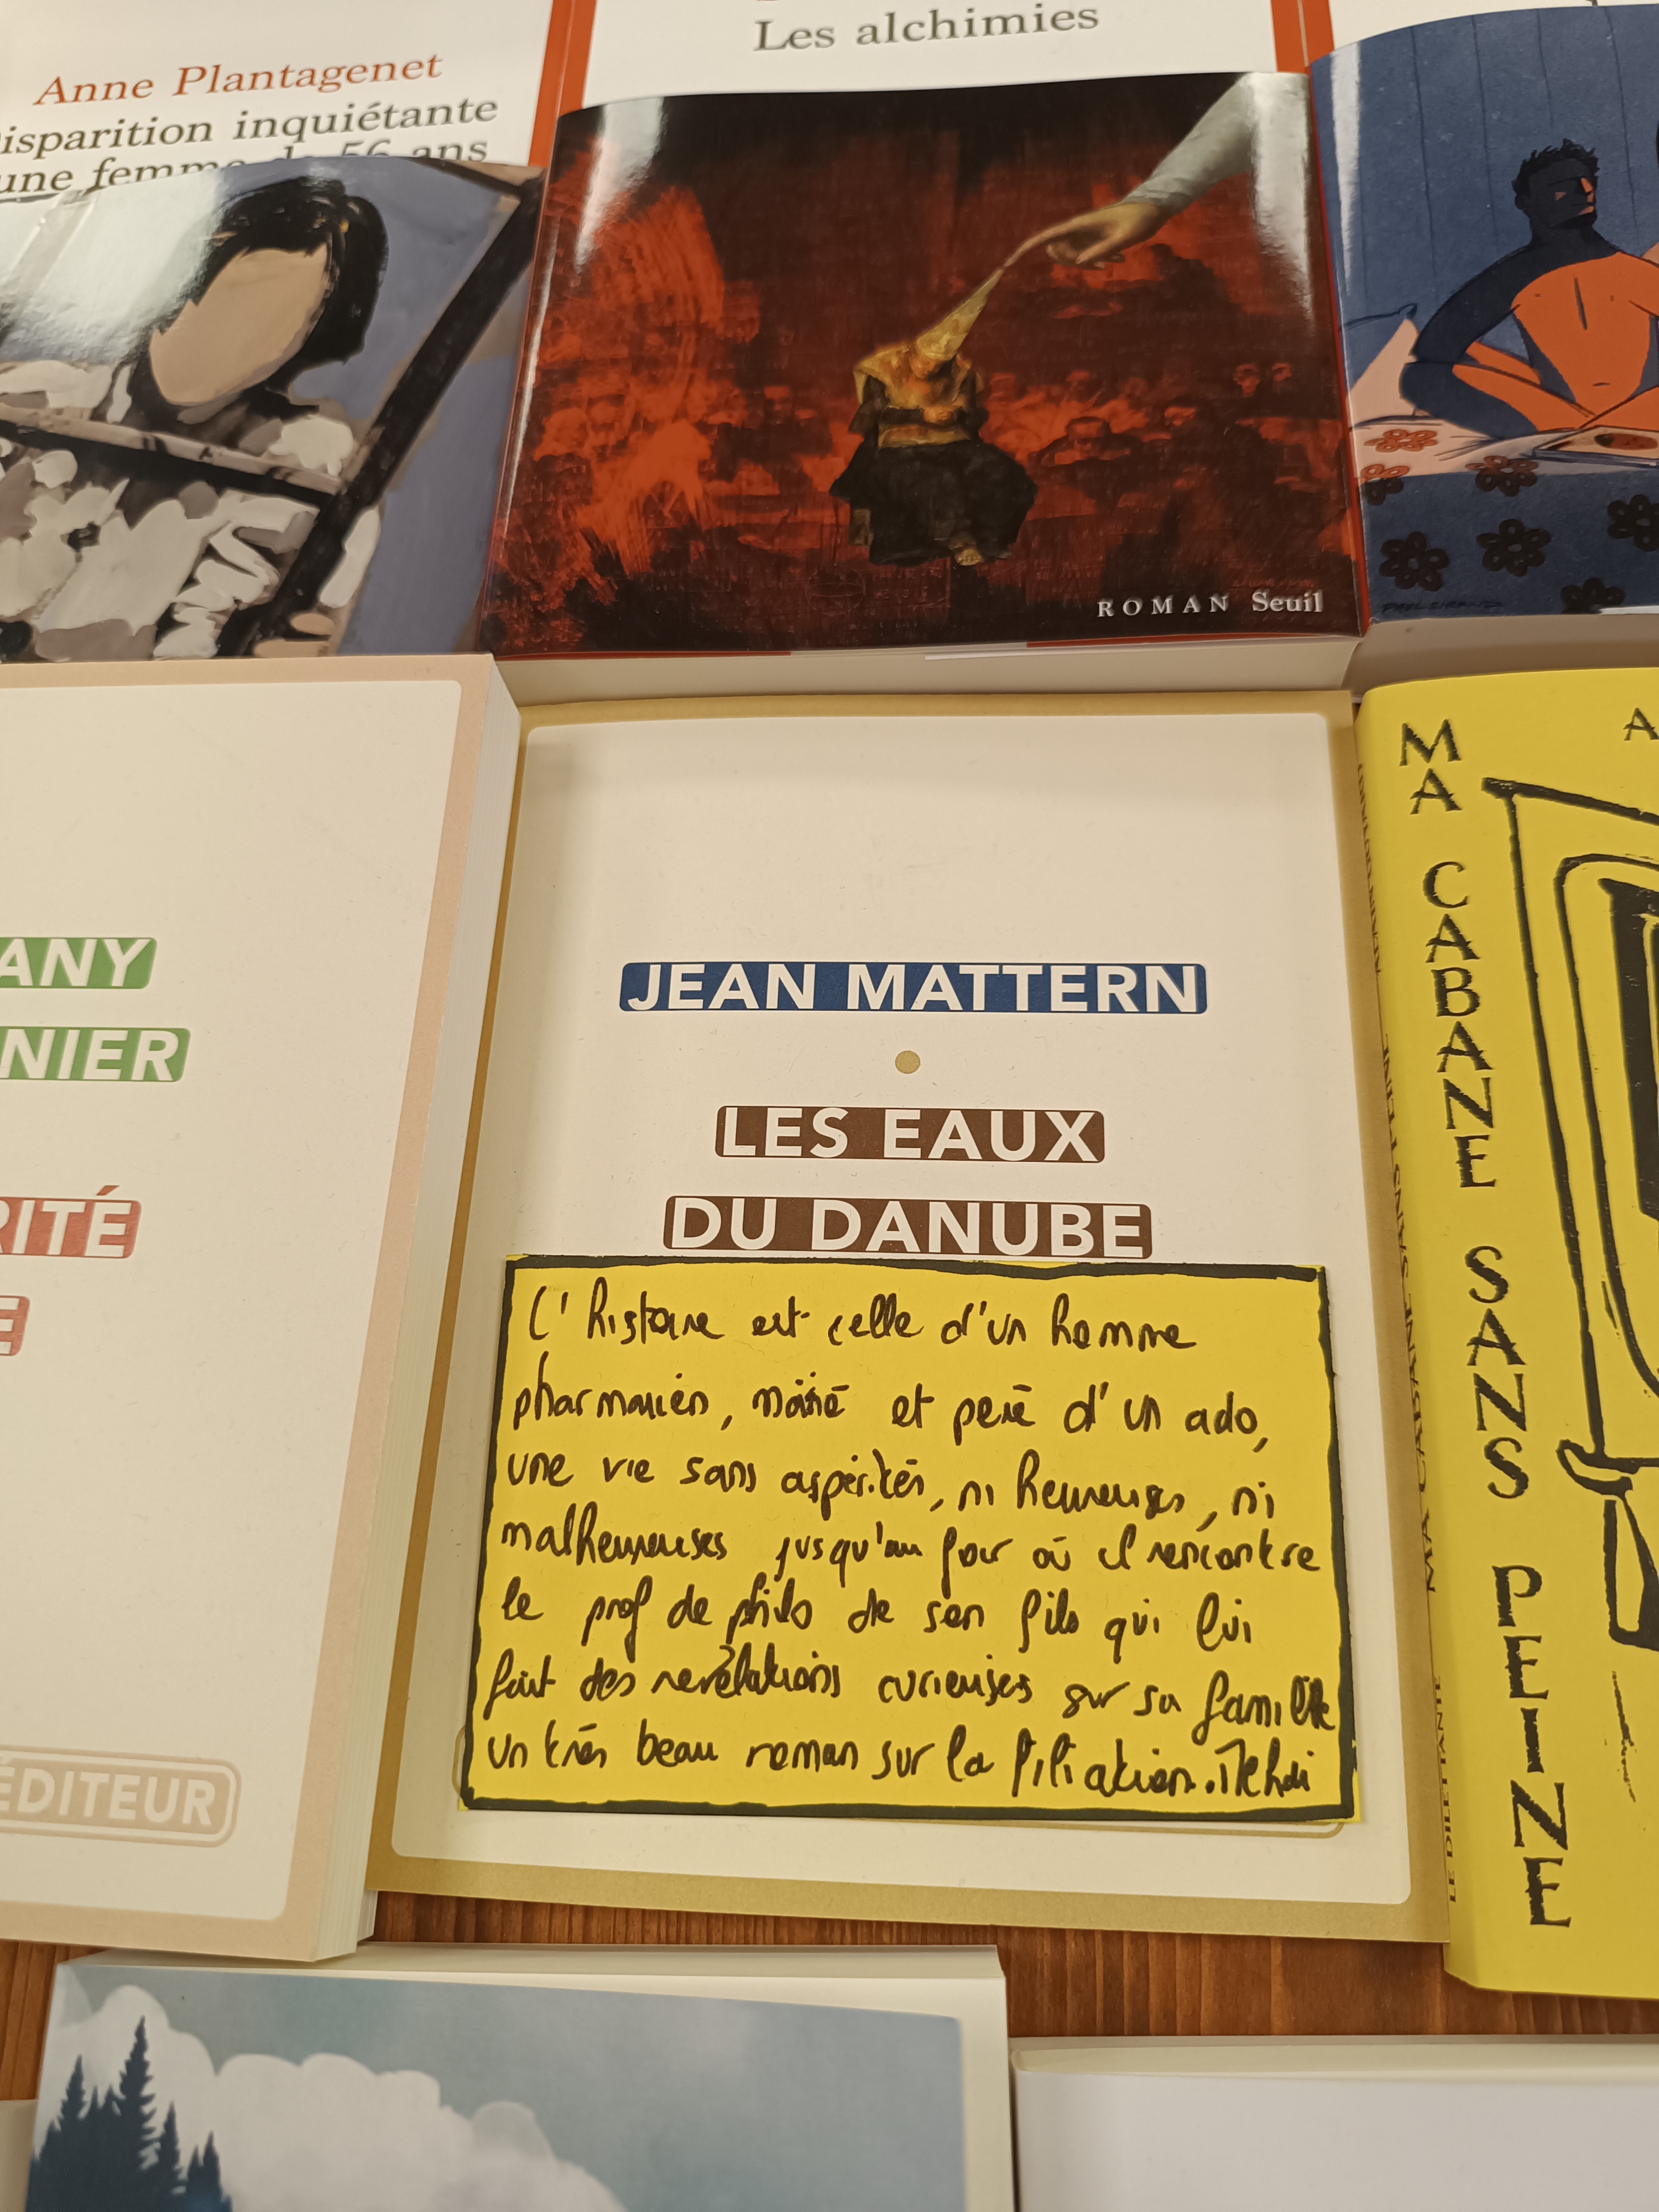 Anne Plantagenet
isparition inquiétante
une femme de 56 ans
Les alchimies
ROMAN Seuil
ANY
NIER
RITÉ
E
ÉDITEUR
JEAN MATTERN
LES EAUX
DU DANUBE
L'histoire est celle d'un homme
pharmacien, marié et père d'un ado,
une vie sans aspérités, ni heureuses, ni
malheureuses jusqu'au jour où il rencontre
le prof de philo de son fils qui lui
fait des revélations curieuses sur sa famille
un très beau roman sur la filiation. Mehdi
MA CABANE SANS PEINE
A
MA CABANE SANS PEINE
LE DILETTANTE